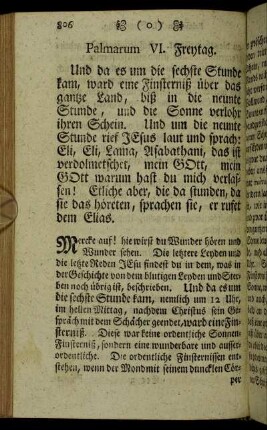 806 ( o )
Palmarum VI. Freytag.
Und da es um die sechste Stunde
kam, ward eine Finsterniß über das
gantze Land, biß in die neunte
Stunde, und die Sonne verlohr
ihren Schein. Und um die neunte
Stunde rief JEsus laut und sprach:
Eli, Eli, Lama, Asabathani, das ist
verdolmetschet, mein GOtt, mein
GOtt warum hast du mich verlas-
sen! Etliche aber, die da stunden, da
sie das höreten, sprachen sie, er rufet
dem Elias.
Mercke auf! hie wirst du Wunder hören und
Wunder sehen. Die letztere Leyden und
die letzte Reden JEsu findest du in dem, was in
der Geschichte von dem blutigen Leyden und Ster-
ben noch übrig ist, beschrieben. Und da es um
die sechste Stunde kam, nemlich um 12 Uhr,
im hellen Mittag, nachdem Christus sein Ge-
spräch mit dem Schächer geendet, ward eine Fin-
sterniß. Diese war keine ordentliche Sonnen-
Finsterniß, sondern eine wunderbare und ausser-
ordentliche. Die ordentliche Finsternissen ent-
stehen, wenn der Mond mit seinem dunckeln Cör-
per